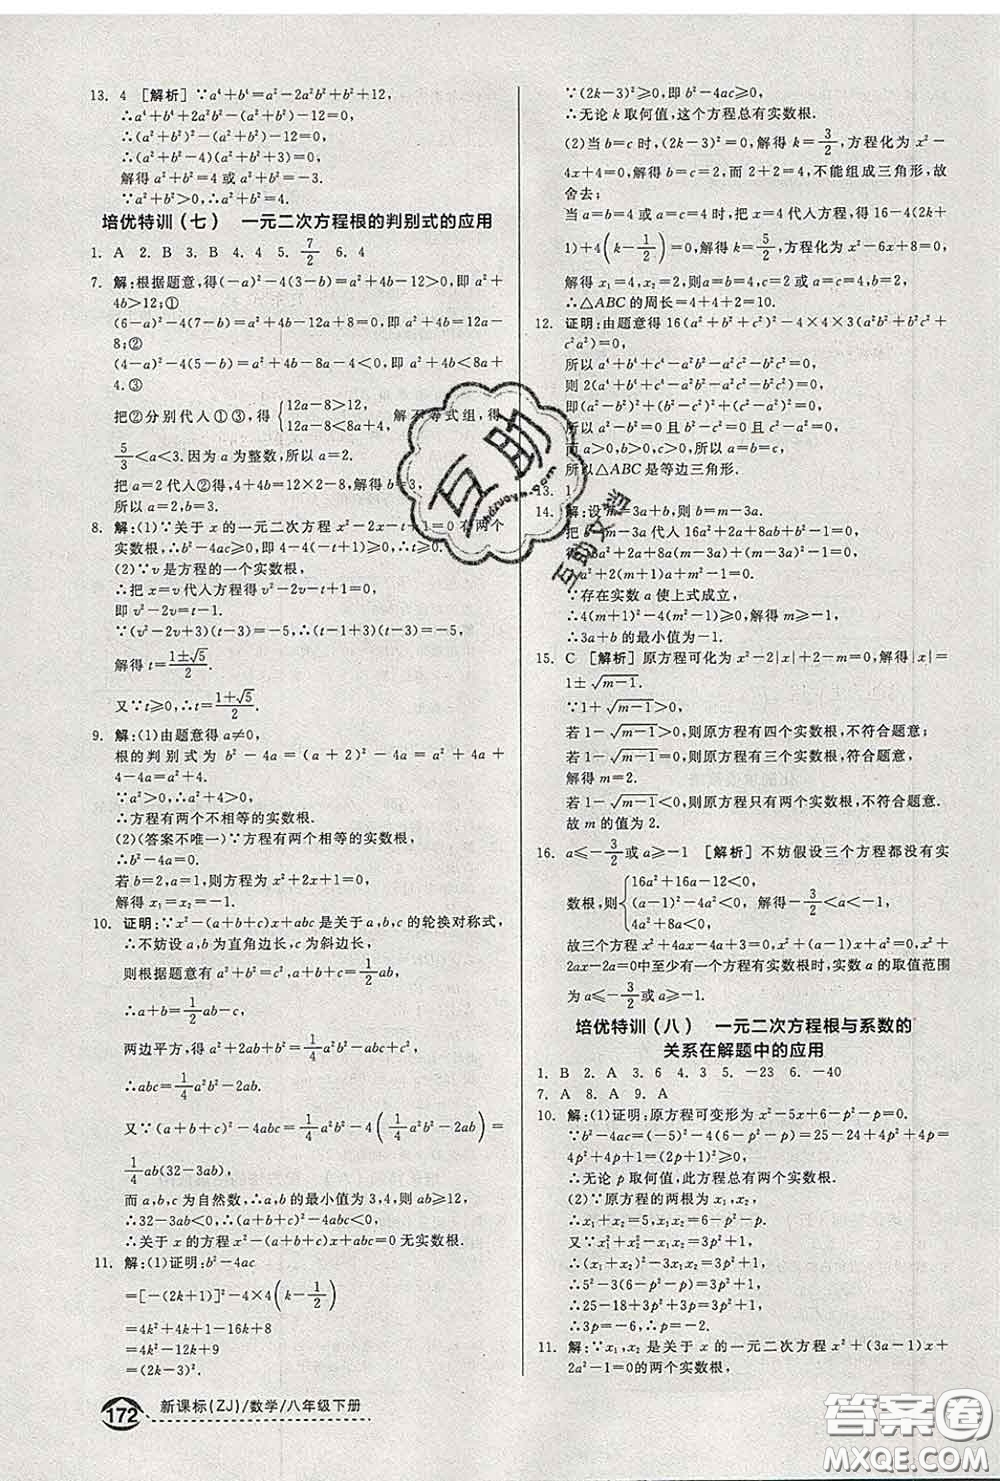 13. 4 [解析] ∵a⁴+b⁴=a²-2a²b²+b²+12,
∴a⁴+b⁴+2a²b²-(a²+b²)-12=0,
∴(a²+b²)²-(a²+b²)-12=0,
∴(a²+b²-4)(a²+b²+3)=0,
解得 a²+b²=4 或 a²+b²=-3.
∵a²+b²>0,∴a²+b²=4.
培优特训(七) 一元二次方程根的判别式的应用
1. A 2. B 3. B 4. 4 5. 7/2 6. 4
7. 解:根据题意,得(-a)²-4(3-b)=a²+4b-12>0,即 a²+
4b>12;①
(6-a)²-4(7-b)=a²+4b-12a+8=0,即 a²+4b=12a-
8;②
(4-a)²-4(5-b)=a²+4b-8a-4<0,即 a²+4b<8a+
4.③
把②分别代入①③,得{12a-8>12, 12a-8<8a+4, 解不等式组,得
5/3<a<3.因为 a 为整数,所以 a=2.
把 a=2 代入②得,4+4b=12×2-8,
所以 a=2,b=3.
8. 解:(1)∵关于 x 的一元二次方程 x²-2x-t+1=0 有两个
实数根,∴Δ=(-2)²-4(-t+1)=4t≥0,∴t≥0.
(2)∵v 是方程的一个实数根,
∴把 x=v 代入方程得 v²-2v-t+1=0,
即 v²-2v=t-1.
∵(v²-2v)(t-3)=-1,∴(t-1)(t-3)=-1,
解得 t=(1±√5)/2.
又∵t≥0,∴t=(1+√5)/2.
9. 解:(1)由题意得 a≠0,
根的判别式为 b²-4a=(a+2)²-4a=a²+4a+
4-4a=a²+4.
∵a²>0,∴a²+4>0,
∴方程有两个不相等的实数根.
(2)(答案不唯一)∵方程有两个相等的实数根,
∴Δ=b²-4a=0.
若 b=2,a=1,则方程为 x²+2x+1=0,
解得 x₁=x₂=-1.
10. 证明:∵x²-(a+b+c)x+abc 是关于 a,b,c 的轮换对称式,
∴不妨设 a,b 为直角边长,c 为斜边长,
则根据题意有 a²+b²=c²,a+b+c=1/2ab,
∴a+b=1/2ab-c,
两边平方,得 a²+2ab+b²=1/4a²b²-abc+c²,
∴abc=1/4a²b²-2ab.
又∵(a+b+c)²-4abc=1/4a²b²-4(1/4a²b²-2ab)=
1/4ab(32-3ab),
而 a,b,c 为自然数,∴a,b 的最小值为 3,4,则 ab≥12,
∴32-3ab<0,∴(a+b+c)²-4abc<0,
∴关于 x 的方程 x²-(a+b+c)x+abc=0 无实数根.
11. 解:(1)证明:b²-4ac
=[-(2k+1)]²-4×4(k-1/2)
=4k²+4k+1-16k+8
=4k²-12k+9
=(2k-3)².
172 新课标(ZJ)/数学/八年级下册
∵(2k-3)²≥0,即 b²-4ac≥0,
∴无论 k 取何值,这个方程总有实数根.
(2)当 b=c 时,(2k-3)²=0,解得 k=3/2,方程化为 x²-
4x+4=0,解得 b=c=2,而 2+2=4,不能组成三角形,故
舍去;
当 a=b 或 a=c 时,把 x=4 代入方程,得 16-4(2k+
1)+4(k-1/2)=0,解得 k=5/2,方程化为 x²-6x+8=0,
解得 x₁=4,x₂=2,则 a=b=4,c=2 或 a=c=4,b=2,
∴△ABC 的周长=4+4+2=10.
12. 证明:由题意得 16(a²+b²+c²)²-4×4×3(a²b²+b²c²+
c²a²)=0,
所以 a⁴+b⁴+c⁴-a²b²-a²c²-b²c²=0,
则 2(a⁴+b⁴+c⁴-a²b²-a²c²-b²c²)=0,
即(a²-b²)²+(b²-c²)²+(c²-a²)²=0,
所以 a²-b²=0 且 b²-c²=0 且 c²-a²=0.
而 a>0,b>0,c>0,所以 a=b=c,
所以△ABC 是等边三角形.
13. 1
14. 解:设 m=3a+b,则 b=m-3a.
代入 10a²+b²+2a+8ab+b²=0,
∴(m-3a)+(m-3a)²=0,
∵存在实数 a 使上式成立,
∴4(m+1)²-4(m²-1)≥0,解得 m≥-1.
∴3a+b 的最小值为-1.
15. C [解析] 原方程可化为 x²-2|x|+2-m=0,解得|x|=
1±√(m-1).
∵1+√(m-1)>0,
若 1-√(m-1)>0,则原方程有四个实数根,不符合题意;
若 1-√(m-1)=0,则原方程有三个实数根,符合题意,
解得 m=2.
若 1-√(m-1)<0,则原方程只有两个实数根,不符合题意.
故 m 的值为 2.
16. a≤-3/2或 a≥-1 [解析] 不妨假设三个方程都没有实
数根,则{16a²+16a-12<0, (a-1)²-4a²<0, 4a²+8a<0, 解得-3/2<a<-1,
故三个方程 x²+4ax-4a+3=0,x²+(a-1)x+a²=0,x²+2ax-2a
=0中至少有一个方程有实数根时,实数 a 的取值范围
为 a≤-3/2或 a≥-1.
培优特训(八) 一元二次方程根与系数的
关系在解题中的应用
1. B 2. A 3. 6 4. 3 5. -23 6. -40
7. A 8. A 9. A
10. 解:(1)证明:原方程可变形为 x²-5x+6-p²-p=0.
∵b²-4ac=(-5)²-4(6-p²-p)=25-24+4p²+
4p=4p²+4p+1=(2p+1)²≥0,
∴无论 p 取何值,此方程总有两个实数根.
(2)∵原方程的两根为 x₁,x₂,
∴x₁+x₂=5,x₁x₂=6-p²-p.
又∵x₁²+x₂²-x₁x₂=3p²+1,
∴(x₁+x₂)²-3x₁x₂=3p²+1,
∴5²-3(6-p²-p)=3p²+1,
∴25-18+3p²+3p=3p²+1,
∴3p=-6,∴p=-2.
11. 解:∵x₁,x₂ 是关于 x 的一元二次方程 x²+(3a-1)x+
的两个实数根,
互助
huzuoye.com
互助文档
答案圈
MXQE.COM